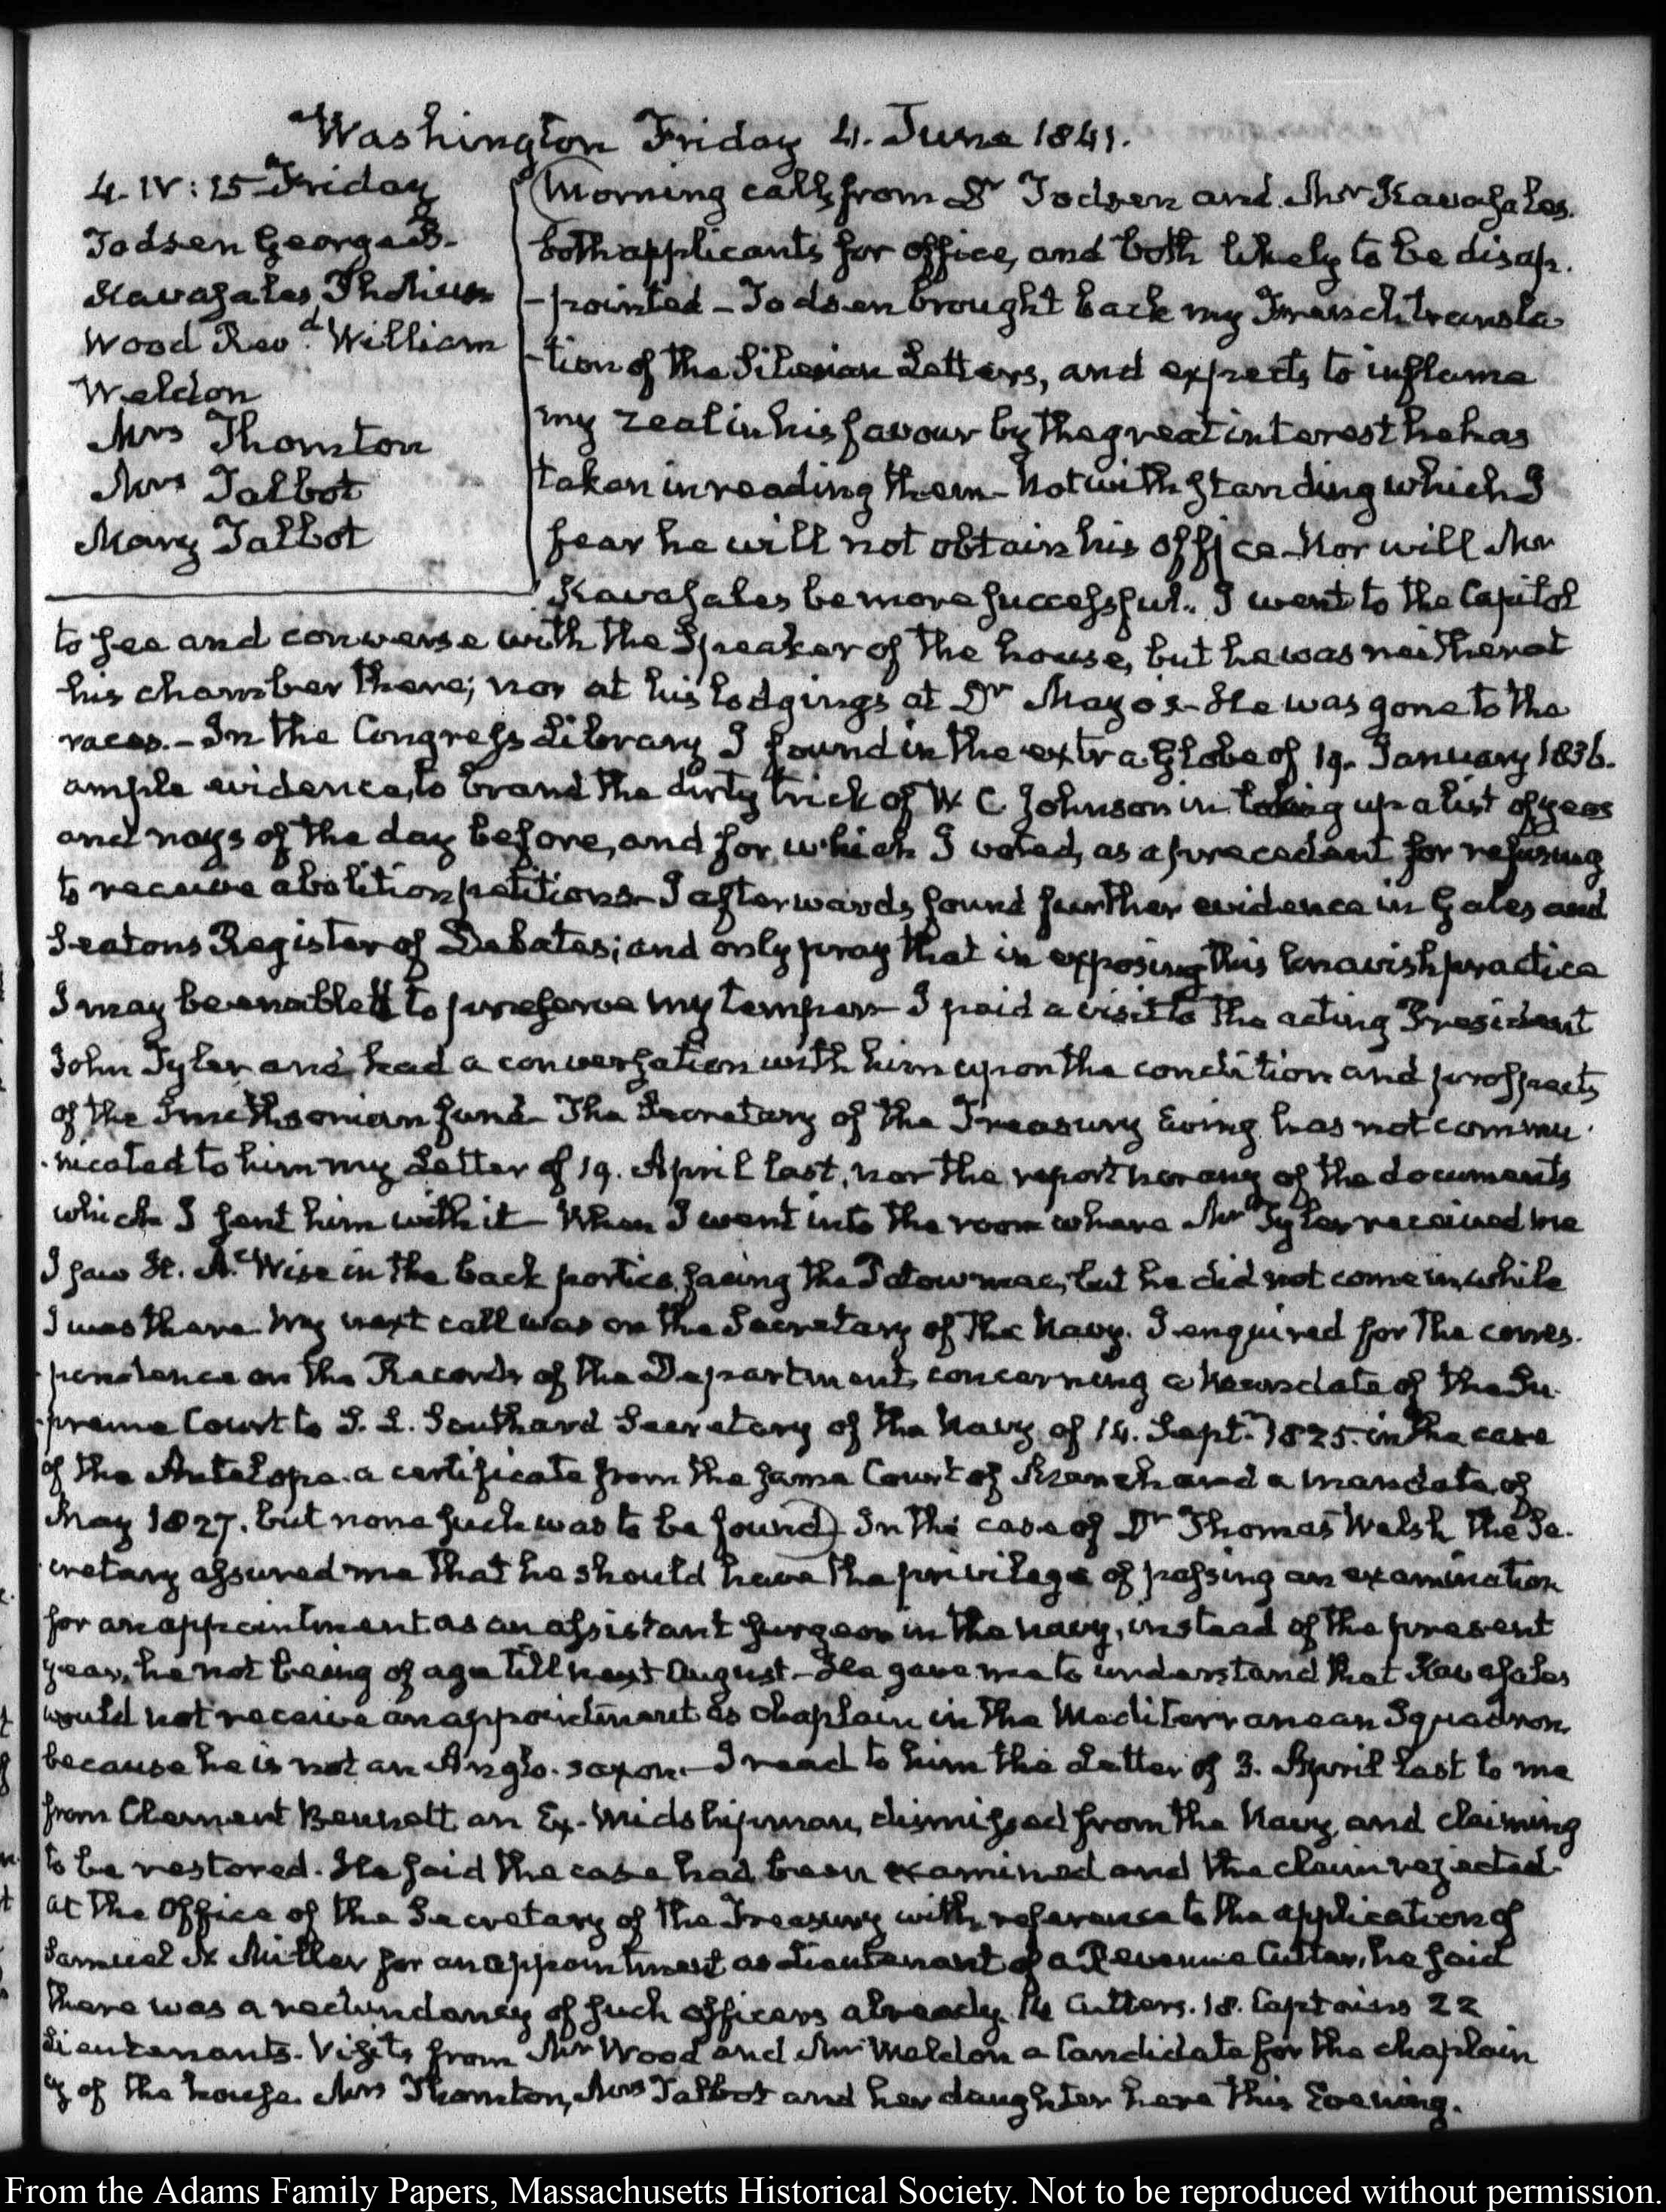 Washington Friday 4. June 1841.
4. IV: 15 Friday
Todsen George B.
Kavasales Photius
Wood Revd. William
Weldon
Mrs Thornton
Mrs Talbot
Mary Talbot
Morning calls from Dr Todsen and Mr Kavasales.
both applicants for office, and both likely to be disap-
-pointed - Todsen brought back my French transla-
-tion of the Silesian Letters, and expects to inflame
my zeal in his favour by the great interest he has
taken in reading them - Notwithstanding which I
fear he will not obtain his office - Nor will Mr
Kavasales be more successful. I went to the Capitol
to see and converse with the Speaker of the house, but he was neither at
his chamber there; nor at his lodgings at Dr Mayo's - He was gone to the
races. - In the Congress Library I found in the extra Globe of 19. January 1836.
ample evidence, to brand the dirty trick of W. C. Johnson in taking up a list of yeas
and nays of the day before, and for which I voted, as a precedent for refusing
to receive abolition petitions - I afterwards found further evidence in Gales and
Seatons Register of Debates; and only pray that in exposing this knavish practice
I may be enabled to preserve my temper - I paid a visit to the acting President
John Tyler and had a conversation with him upon the condition and prospects
of the Smithsonian fund - The Secretary of the Treasury Ewing has not commu-
-nicated to him my Letter of 19. April last, nor the report nor any of the documents
which I sent him with it - When I went into the room where Mr Tyler received me
I saw H. A. Wise in the back portico, facing the Potowmac, but he did not come in, while
I was there. My next call was on the Secretary of the Navy. I enquired for the corres-
-pondence on the Records of the Department, concerning a mandate of the Su-
-preme Court to S. L. Southard Secretary of the Navy of 14. Septr. 1825. in the case
of the Antelope. a certificate from the same Court of March and a mandate of
May 1827. but none such was to be found) In the case of Dr Thomas Welsh the Se-
-cretary assured me that he should have the privilege of passing an examination
for an appointment as an assistant surgeon in the navy, instead of the present
year, he not being of age till next August - He gave me to understand that Kavasales
would not receive an appointment as chaplain in the Mediterranean Squadron,
because he is not an Anglo-saxon. - I read to him the Letter of 3. April last to me
from Clement Bennett an Ex-Midshipman, dismissed from the Navy, and claiming
to be restored. He said the case had been examined and the claim rejected
at the Office of the Secretary of the Treasury with reference to the application of
Samuel Miller for an appointment as Lieutenant of a Revenue Cutter, he said
there was a redundancy of such officers already. 14 Cutters. 18. Captains 22
Lieutenants. Visits from Mr Wood and Mr Weldon a Candidate for the chaplain
cy of the house. Mrs Thornton, Mrs Talbot and her daughter here this Evening.
From the Adams Family Papers, Massachusetts Historical Society. Not to be reproduced without permission.